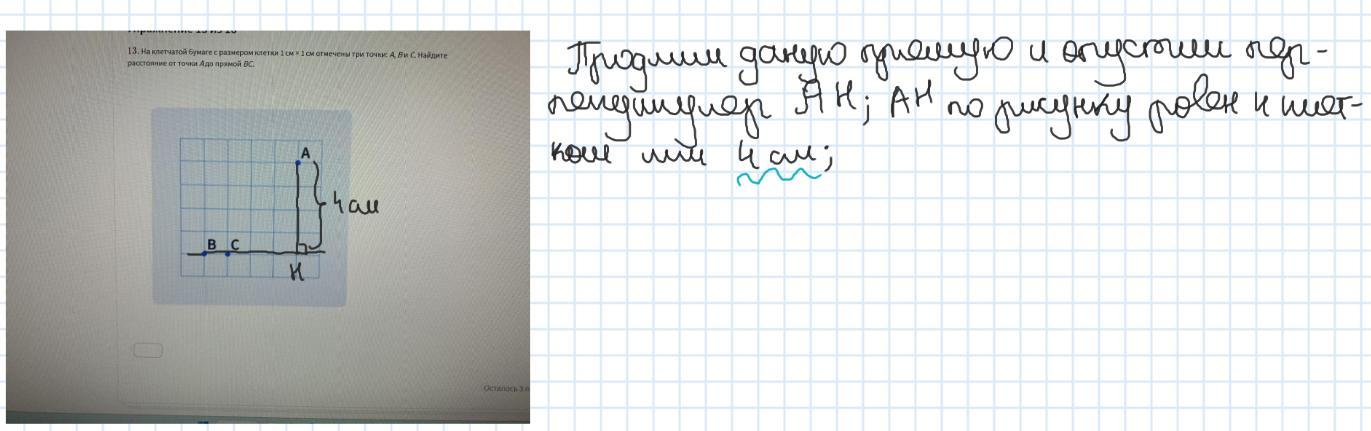 Упражнение 13 из 16
13. На клетчатой бумаге с размером клетки 1 см × 1 см отмечены три точки: A, B и C. Найдите
расстояние от точки A до прямой BC.
A
4 см
B C
H
Осталось 3
Продлим даную прямую и опустим пер-
пендикуляр AH; AH по рисунку равен 4 клет-
кам или 4 см;